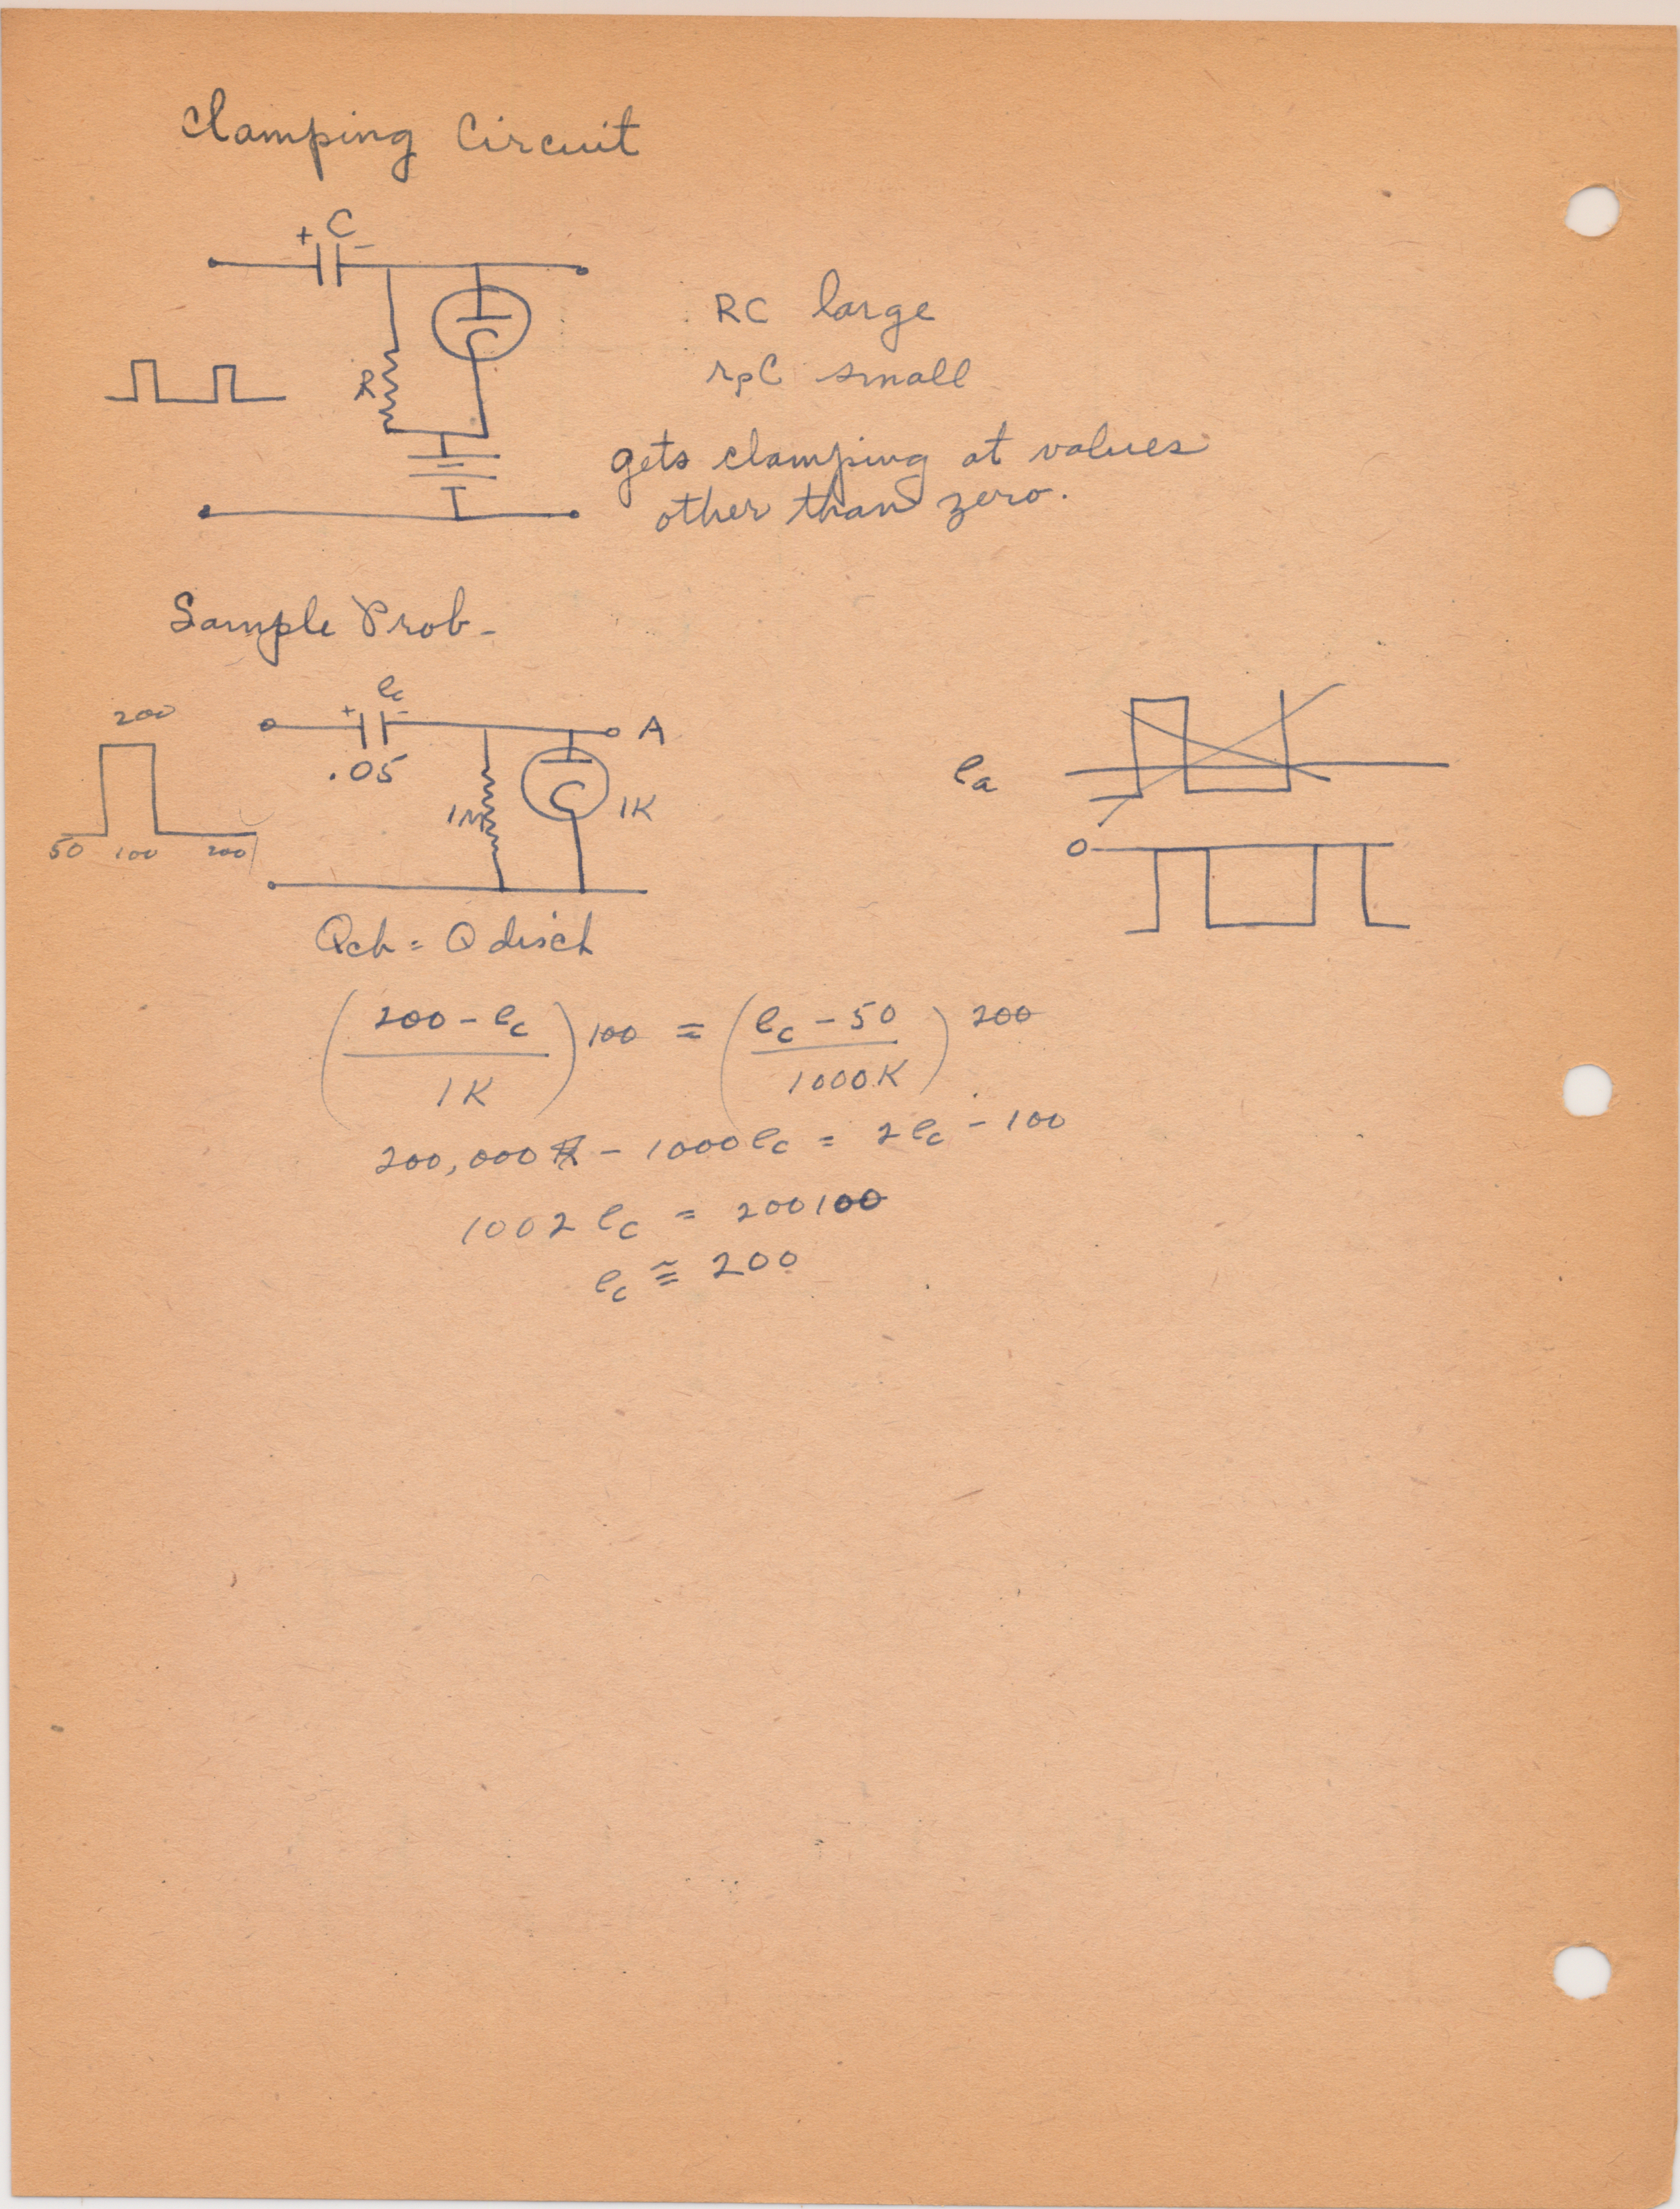 Clamping Circuit
+ C -
R
RC large
rpC small
gets clamping at values
other than zero.
Sample Prob-
200
50 100 200
+ ec -
.05
A
1M
1K
ea
0
Qch = Q disch
(200 - ec / 1K) 100 = (ec - 50 / 1000K) 200
200,000 - 1000ec = 2ec - 100
1002 ec = 200100
ec ≅ 200